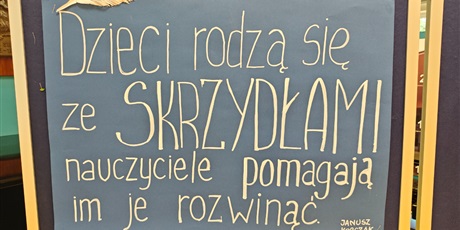 Dzieci rodzą się
ze SKRZYDŁAMI
nauczyciele pomagają
im je rozwinąć.
JANUSZ
KORCZAK